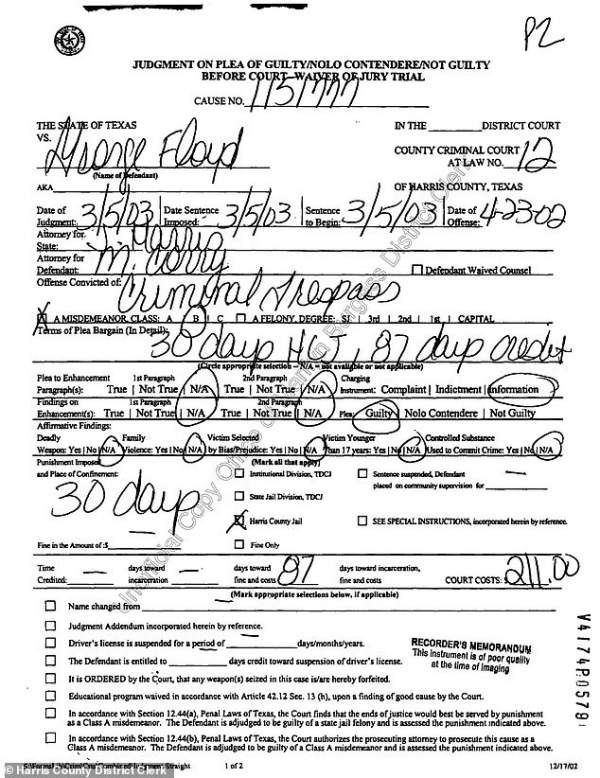 P2
JUDGMENT ON PLEA OF GUILTY/NOLO CONTENDERE/NOT GUILTY
BEFORE COURT–WAIVER OF JURY TRIAL
CAUSE NO. 1151777
THE STATE OF TEXAS IN THE ________ DISTRICT COURT
VS.
George Floyd COUNTY CRIMINAL COURT
AT LAW NO. 12
(Name of Defendant)
AKA OF HARRIS COUNTY, TEXAS
Date of Judgment: 3/5/03 Date Sentence Imposed: 3/5/03 Sentence to Begin: 3/5/03 Date of Offense: 4-23-02
Attorney for State: Harris
Attorney for Defendant: M. Corry ☐ Defendant Waived Counsel
Offense Convicted of: Criminal Trespass
☒ A MISDEMEANOR, CLASS: A | B | C ☐ A FELONY, DEGREE: SJ | 3rd | 2nd | 1st | CAPITAL
Terms of Plea Bargain (In Detail): 30 days HCJ, 87 days credit
(Circle appropriate selection – N/A = not available or not applicable)
Plea to Enhancement 1st Paragraph 2nd Paragraph Charging
Paragraph(s): True | Not True | N/A True | Not True | N/A Instrument: Complaint | Indictment | Information
Findings on 1st Paragraph 2nd Paragraph
Enhancement(s): True | Not True | N/A True | Not True | N/A Plea: Guilty | Nolo Contendere | Not Guilty
Affirmative Findings:
Deadly Family Victim Selected Victim Younger Controlled Substance
Weapon: Yes | No | N/A Violence: Yes | No | N/A by Bias/Prejudice: Yes | No | N/A Than 17 years: Yes | No | N/A Used to Commit Crime: Yes | No | N/A
Punishment Imposed (Mark all that apply)
and Place of Confinement: ☐ Institutional Division, TDCJ ☐ Sentence suspended, Defendant
placed on community supervision for
30 days ☐ State Jail Division, TDCJ
☒ Harris County Jail ☐ SEE SPECIAL INSTRUCTIONS, incorporated herein by reference.
Fine in the Amount of :$ ☐ Fine Only
Time days toward days toward 87 days toward incarceration,
Credited: incarceration fine and costs fine and costs COURT COSTS: $211.00
(Mark appropriate selections below, if applicable)
☐ Name changed from
☐ Judgment Addendum incorporated herein by reference.
☐ Driver's license is suspended for a period of ________ days/months/years.
☐ The Defendant is entitled to ________ days credit toward suspension of driver's license.
☐ It is ORDERED by the Court, that any weapon(s) seized in this case is/are hereby forfeited.
☐ Educational program waived in accordance with Article 42.12 Sec. 13 (h), upon a finding of good cause by the Court.
☐ In accordance with Section 12.44(a), Penal Laws of Texas, the Court finds that the ends of justice would best be served by punishment
as a Class A misdemeanor. The Defendant is adjudged to be guilty of a state jail felony and is assessed the punishment indicated above.
☐ In accordance with Section 12.44(b), Penal Laws of Texas, the Court authorizes the prosecuting attorney to prosecute this cause as a
Class A misdemeanor. The Defendant is adjudged to be guilty of a Class A misdemeanor and is assessed the punishment indicated above.
RECORDER'S MEMORANDUM
This instrument is of poor quality
at the time of imaging
V4174P0579
1 of 2 12/17/02
Unofficial Copy Office of Burgess District Clerk
© Harris County District Clerk